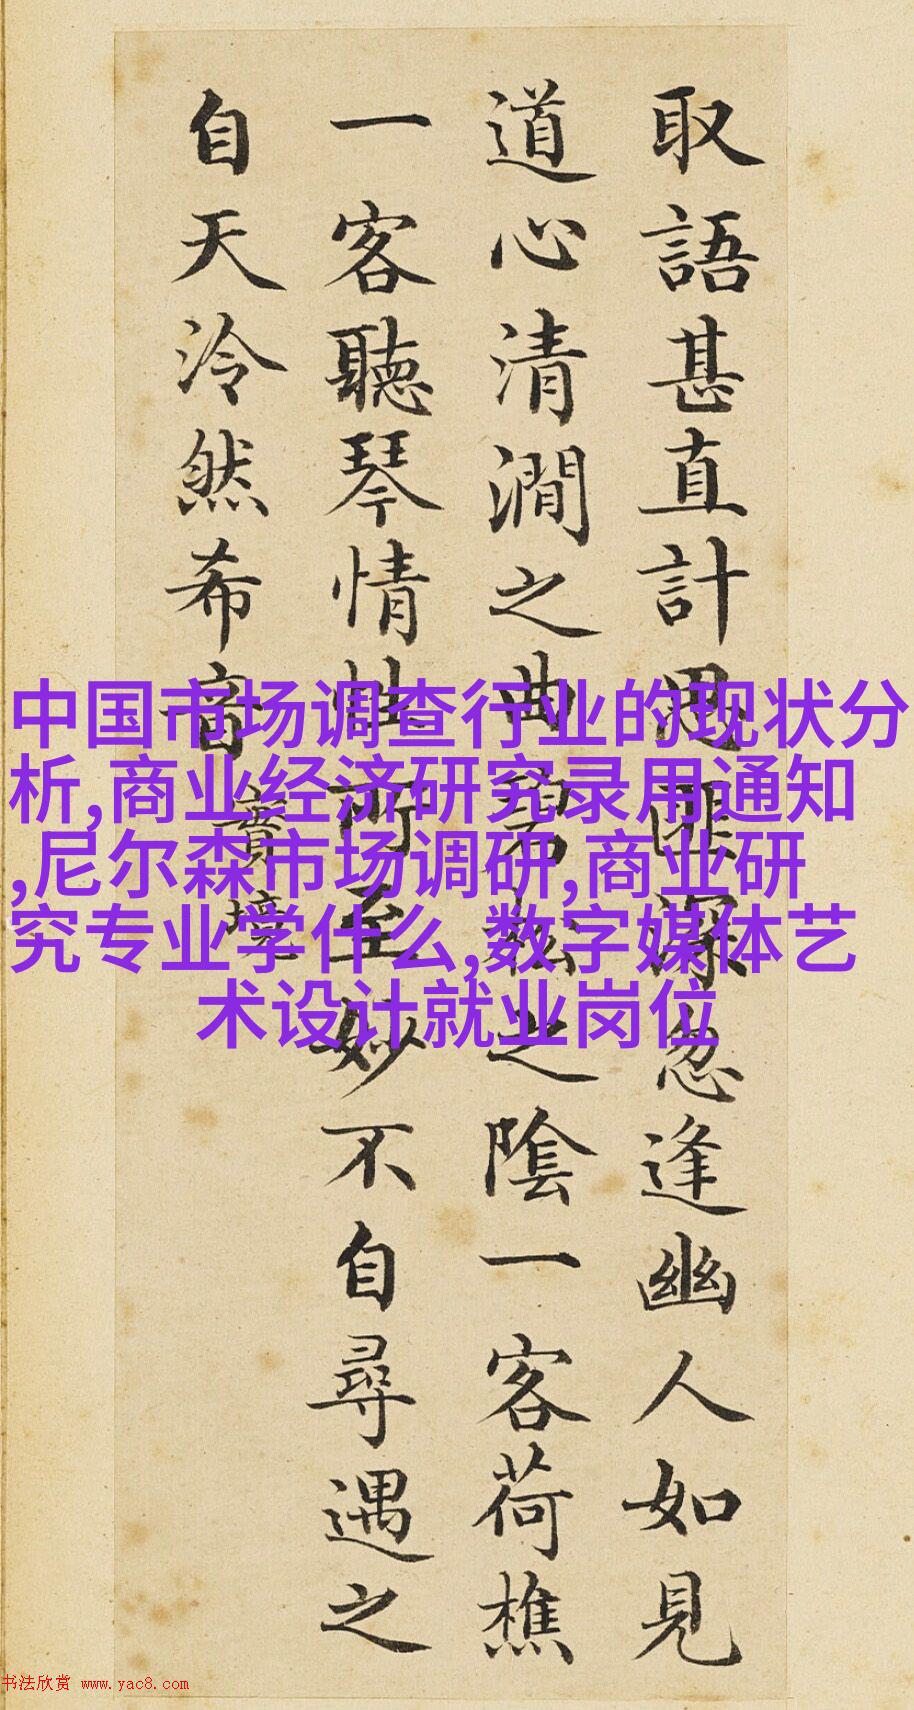 取語甚直計思匪深忽逢幽人如見
道心清澗之曲碧松之陰一客荷樵
一客聽琴情性所至妙不自尋遇之
自天泠然希音
實境
中国市场调查行业的现状分
析,商业经济研究录用通知
,尼尔森市场调研,商业研
究专业学什么,数字媒体艺
术设计就业岗位
书法欣赏 www.yac8.com